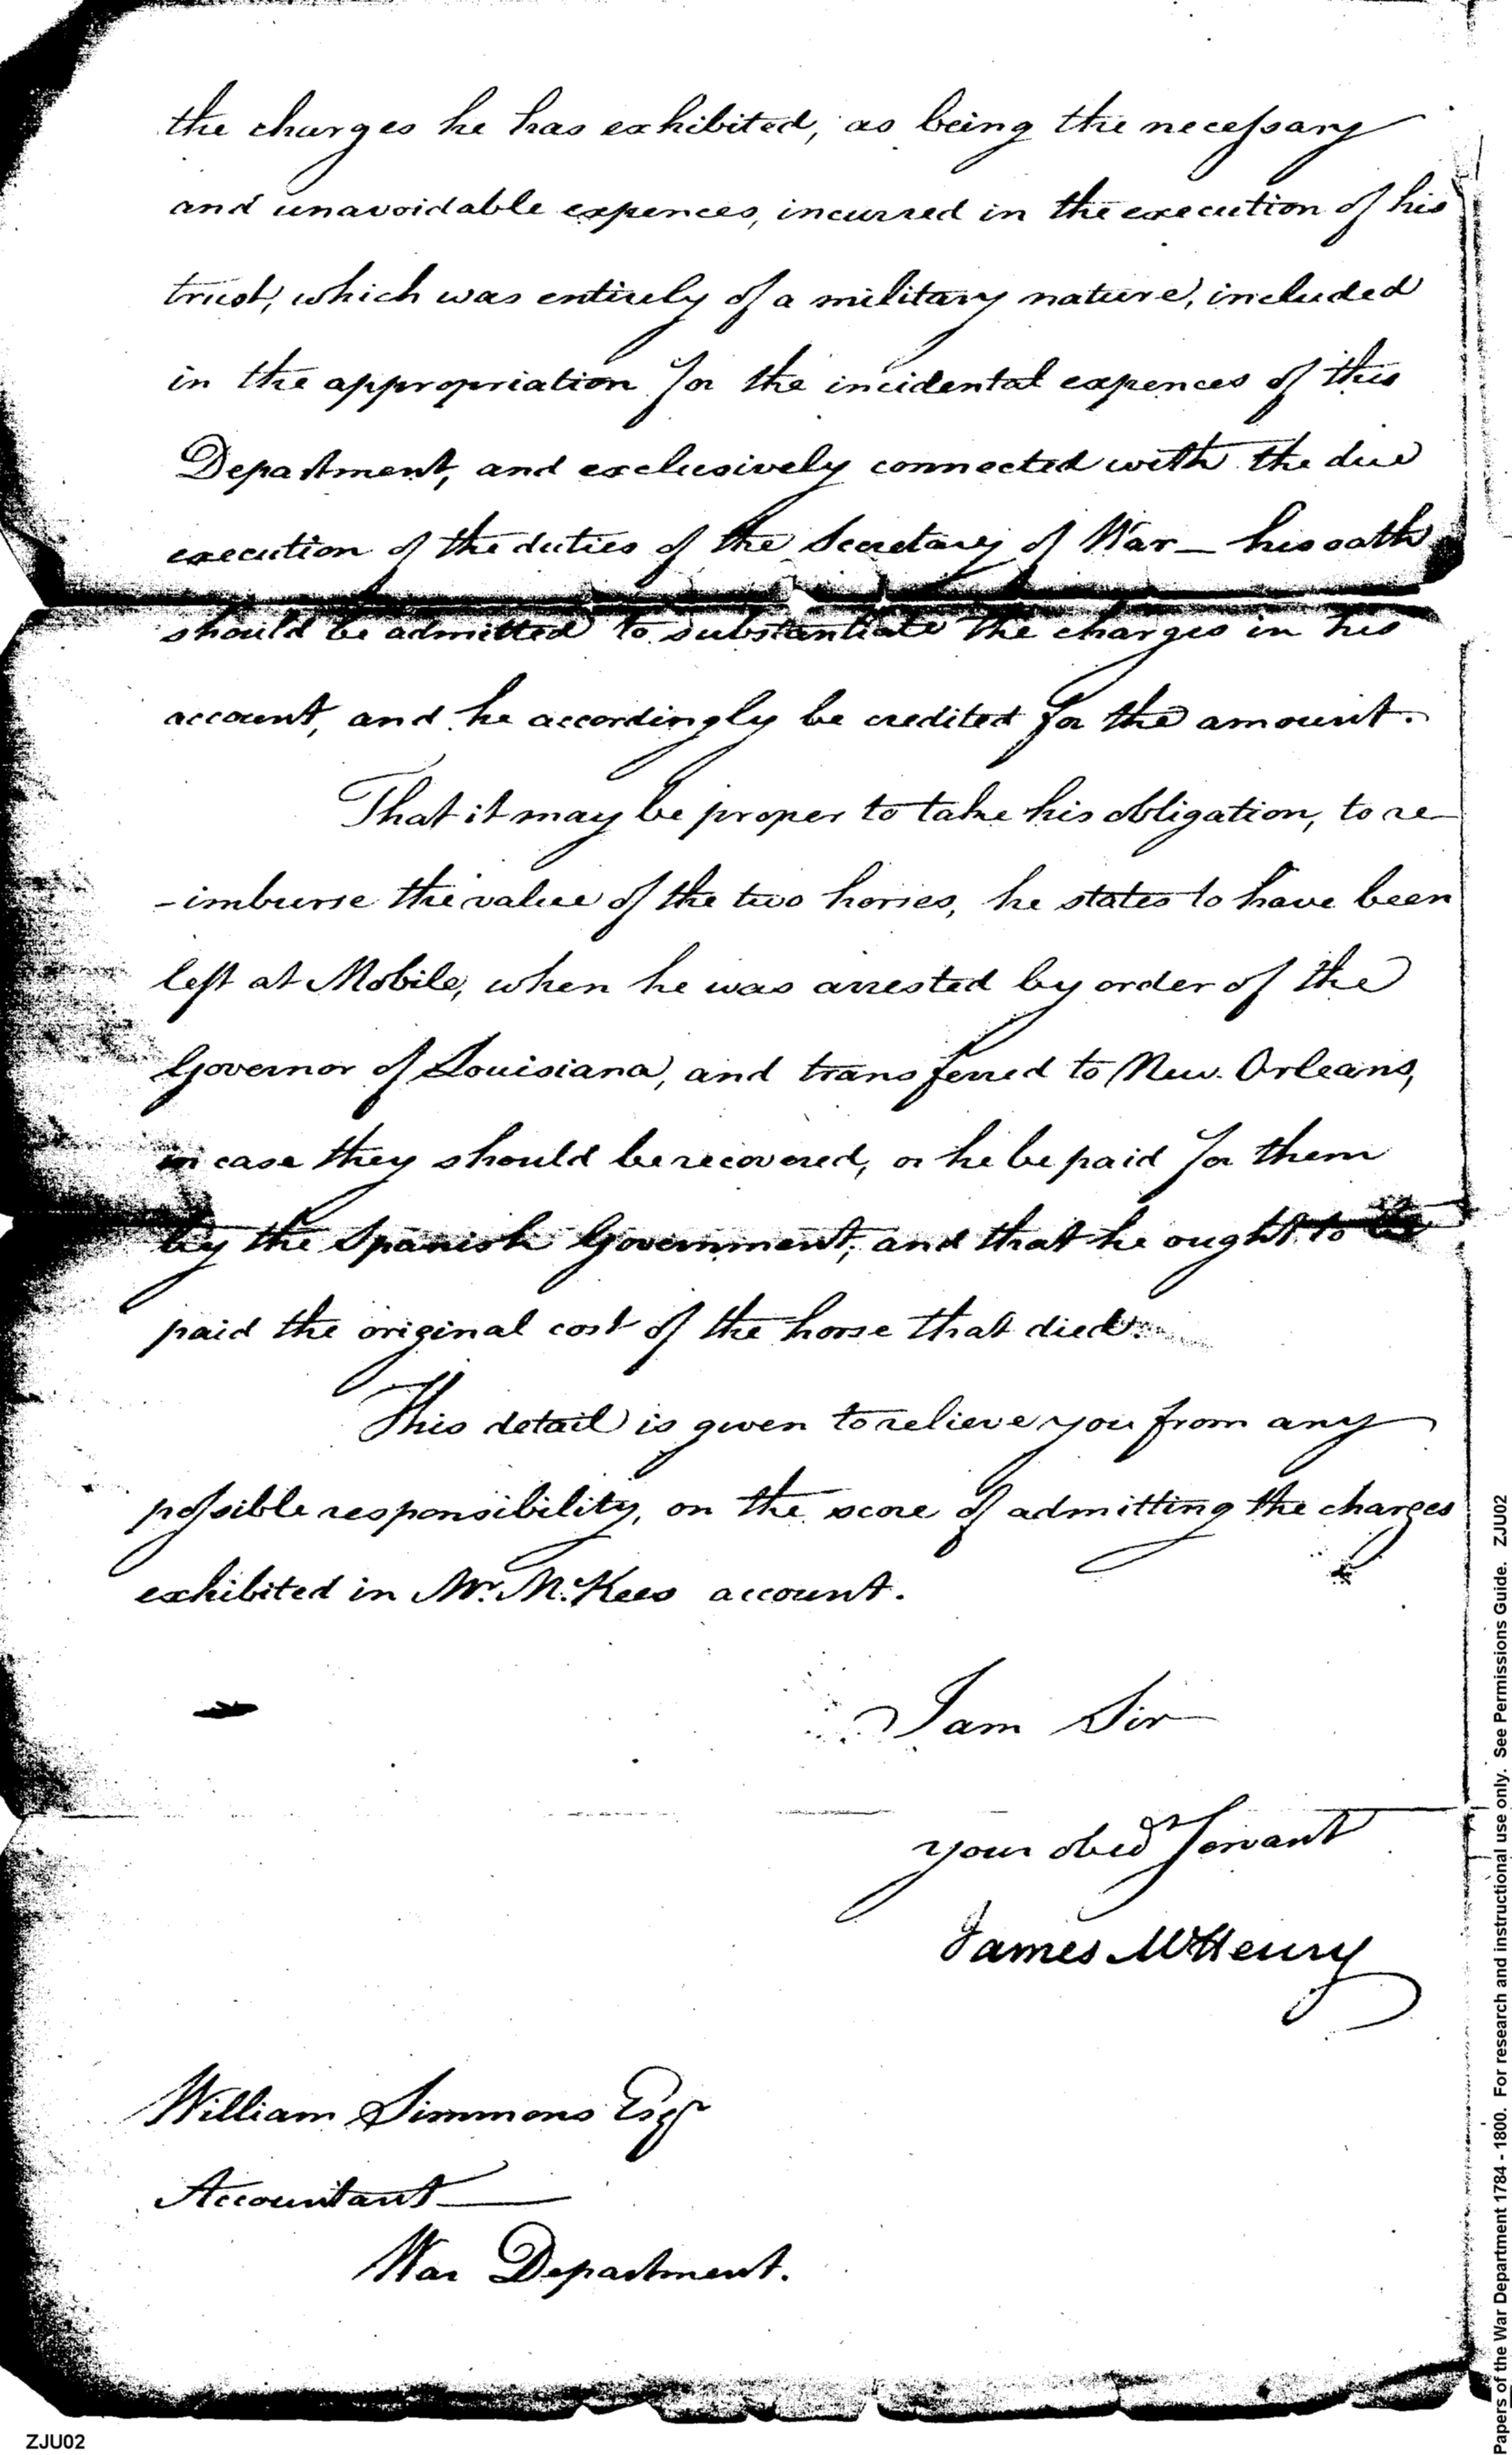 the charges he has exhibited, as being the necessary
and unavoidable expences, incurred in the execution of his
trust, which was entirely of a military nature, included
in the appropriation for the incidental expences of this
Department, and exclusively connected with the due
execution of the duties of the Secretary of War — his oath
should be admitted to substantiate the charges in his
account, and he accordingly be credited for the amount.
That it may be proper to take his obligation, to re-
-imburse the value of the two horses, he states to have been
left at Mobile, when he was arrested by order of the
Governor of Louisiana, and transferred to New Orleans,
in case they should be recovered, or he be paid for them
by the Spanish Government; and that he ought to be
paid the original cost of the horse that died.
This detail is given to relieve you from any
possible responsibility, on the score of admitting the charges
exhibited in Mr. McKees account.
I am Sir
your obedt Servant
James McHenry
William Simmons Esqr
Accountant
War Department.
ZJU02
Papers of the War Department 1784 - 1800. For research and instructional use only. See Permissions Guide. ZJU02